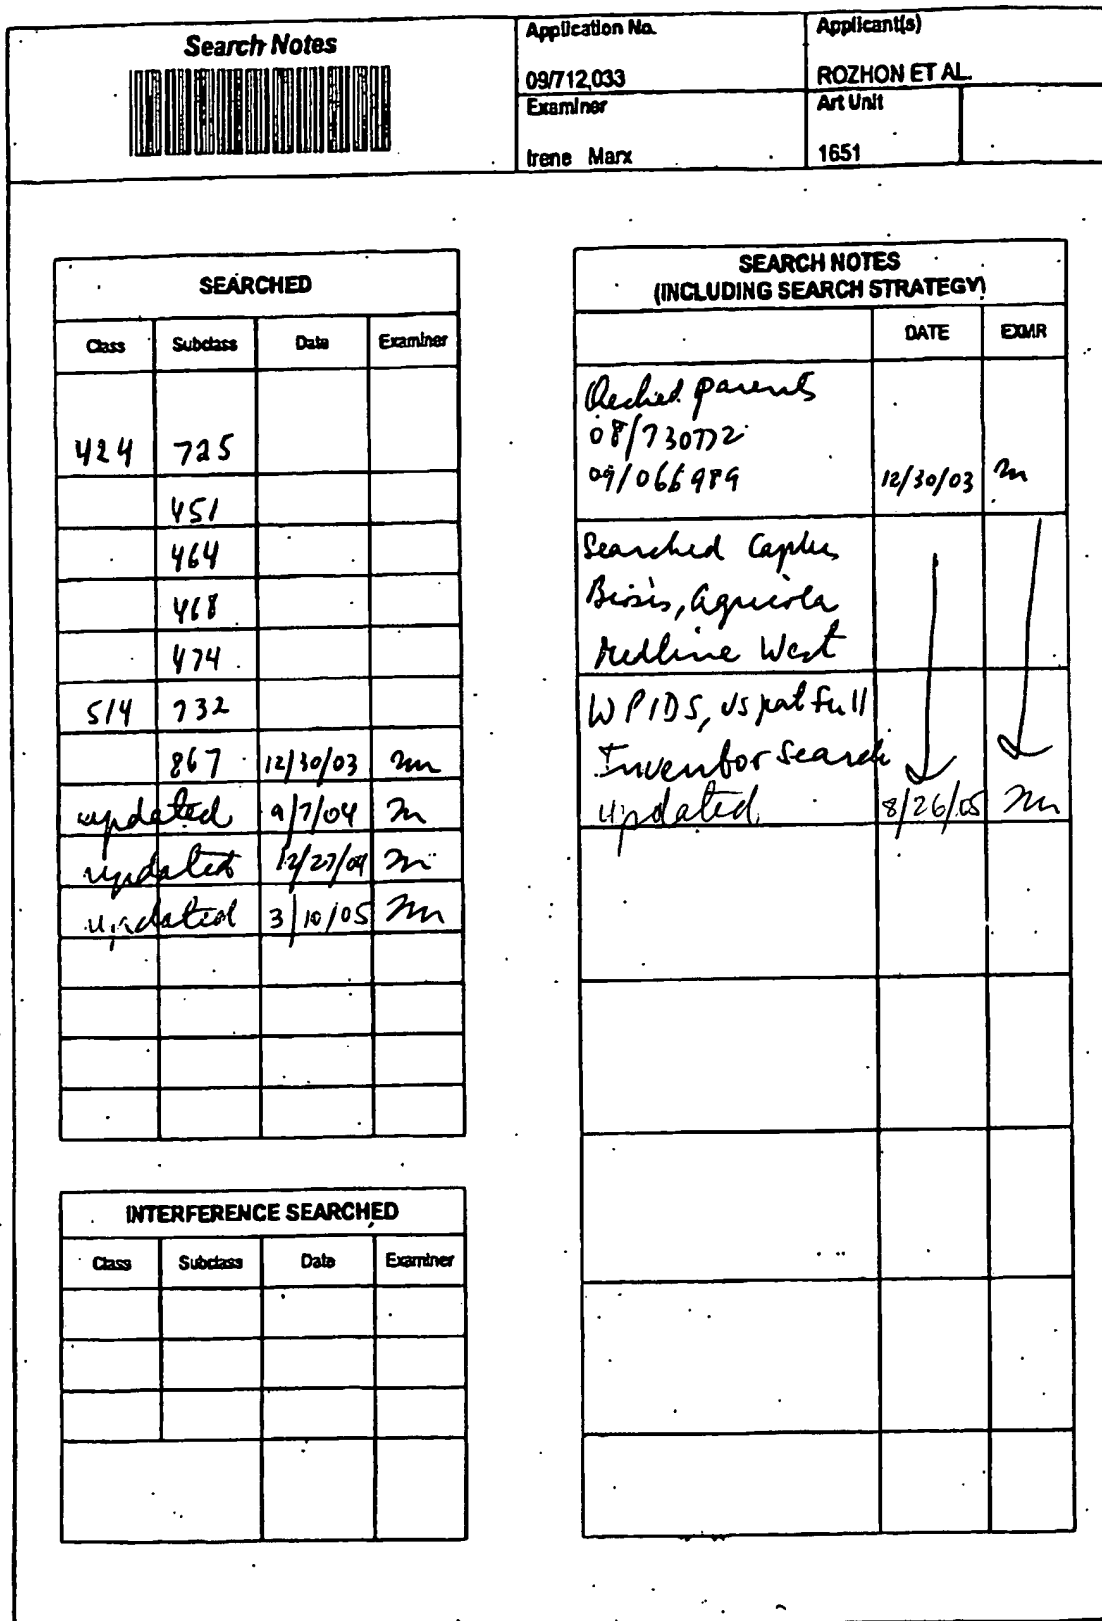 Search Notes
Application No.
09/712,033
Applicant(s)
ROZHON ET AL.
Examiner
Irene Marx
Art Unit
1651
SEARCHED
Class Subclass Date Examiner
424 725
451
464
468
474
514 732
867 12/30/03 m
updated 9/7/04 m
updated 12/27/04 m
updated 3/10/05 m
INTERFERENCE SEARCHED
Class Subclass Date Examiner
SEARCH NOTES
(INCLUDING SEARCH STRATEGY)
DATE EXMR
Checked parents
08/730772
09/066989 12/30/03 m
Searched Caplus
Biosis, Agricola
Medline West
WPIDS, uspatfull
Inventor search
updated 8/26/05 m